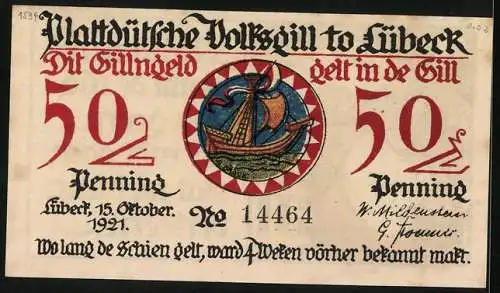 Plattdütsche Volksgill to Lübeck
Dit Gillngeld gelt in de Gill
50 50
Penning Penning
Lübeck, 15. Oktober. 1921.
No 14464
Wo lang de Schien gelt, ward 4 Weken vörher bekannt makt.